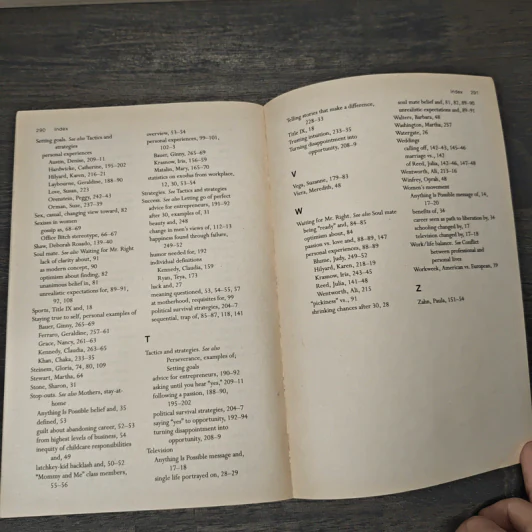 290 INDEX
Setting goals. See also Tactics and
strategies
personal experiences
Austin, Denise, 209–11
Hardwicke, Catherine, 195–202
Hilyard, Karen, 216–21
Laybourne, Geraldine, 188–90
Love, Susan, 223
Ornstein, Peggy, 242–43
Orman, Suze, 237–39
Sex, casual, changing view toward, 82
Sexism in women
gossip as, 68–69
Office Bitch stereotype, 66–67
Shaw, Deborah Rosado, 139–40
Soul mate. See also Waiting for Mr. Right
lack of clarity about, 91
as modern concept, 90
optimism about finding, 82
unanimous belief in, 81
unrealistic expectations for, 89–91,
92, 108
Sports, Title IX and, 18
Staying true to self, personal examples of
Bauer, Ginny, 265–69
Ferraro, Geraldine, 257–61
Grace, Nancy, 261–63
Kennedy, Claudia, 263–65
Khan, Chaka, 233–35
Steinem, Gloria, 74, 80, 109
Stewart, Martha, 64
Stone, Sharon, 31
Stop outs. See also Mothers, stay-at-
home
Anything Is Possible belief and, 35
defined, 53
guilt about abandoning career, 52–53
from highest levels of business, 54
inequity of childcare responsibilities
and, 49
latchkey-kid backlash and, 50–52
"Mommy and Me" class members,
55–56
overview, 53–54
personal experiences, 99–101,
102–3
Bauer, Ginny, 265–69
Krasnow, Iris, 156–59
Matalin, Mary, 165–70
statistics on exodus from workplace,
12, 30, 53–54
Strategies. See Tactics and strategies
Success. See also Letting go of perfect
advice for entrepreneurs, 191–92
after 30, examples of, 31
beauty and, 248
change in men's views of, 112–13
happiness found through failure,
249–52
humor needed for, 192
individual definitions
Kennedy, Claudia, 159
Ryan, Teya, 173
luck and, 27
meaning questioned, 53, 54–55, 57
at motherhood, requisites for, 99
political survival strategies, 204–7
sequential, trap of, 85–87, 118, 141
T
Tactics and strategies. See also
Perseverance, examples of;
Setting goals
advice for entrepreneurs, 190–92
asking until you hear "yes," 209–11
following a passion, 188–90,
195–202
political survival strategies, 204–7
saying "yes" to opportunity, 192–94
turning disappointment into
opportunity, 208–9
Television
Anything Is Possible message and,
17–18
single life portrayed on, 28–29
INDEX 291
Telling stories that make a difference,
228–33
Title IX, 18
Trusting intuition, 233–35
Turning disappointment into
opportunity, 208–9
V
Vega, Suzanne, 179–83
Vieira, Meredith, 48
W
Waiting for Mr. Right. See also Soul mate
being "ready" and, 84–85
optimism about, 84
passion vs. love and, 88–89, 147
personal experiences, 88–89
Blume, Judy, 249–52
Hilyard, Karen, 218–19
Krasnow, Iris, 243–45
Reed, Julia, 141–48
Wentworth, Ali, 215
"pickiness" vs., 91
shrinking chances after 30, 28
soul mate belief and, 81, 82, 89–90
unrealistic expectations and, 89–91
Walters, Barbara, 48
Washington, Martha, 257
Watergate, 26
Weddings
calling off, 142–43, 145–46
marriage vs., 142
of Reed, Julia, 142–46, 147–48
Wentworth, Ali, 213–16
Winfrey, Oprah, 48
Women's movement
Anything Is Possible message of, 14,
17–20
benefits of, 34
career seen as path to liberation by, 34
schooling changed by, 17
television changed by, 17–18
Work/life balance. See Conflict
between professional and
personal lives
Workweek, American vs. European, 39
Z
Zahn, Paula, 151–54